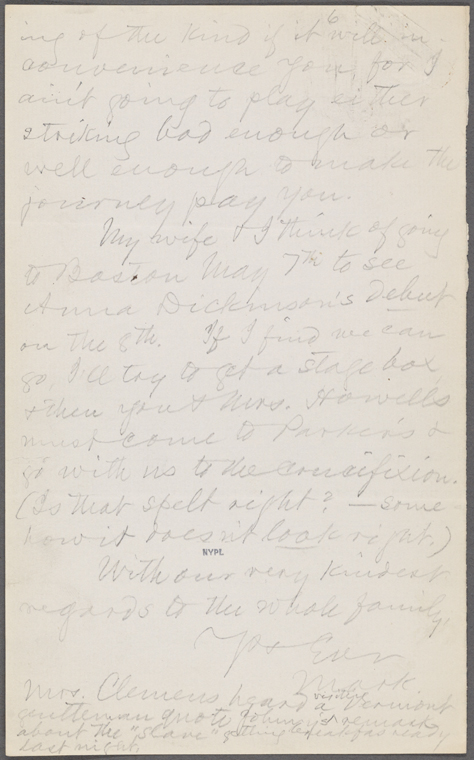 ing of the kind if it will in-
convenience you, for I
ain't going to play either
striking bad enough or
well enough to make the
journey pay you.
My wife & I think of going
to Boston May 7th to see
Anna Dickinson's debut
on the 8th. If I find we can
go, I'll try to get a stage box,
& then you & Mrs. Howells
must come to Parker's &
go with us to the crucifixion.
(Is that spelt right? — some-
how it doesn't look right.)
NYPL
With our very kindest
regards to the whole family,
Yrs Ever
Mark.
Mrs. Clemens heard a Vermont
gentleman quote Johnny's remark
about the "slave" getting breakfast ready
last night.